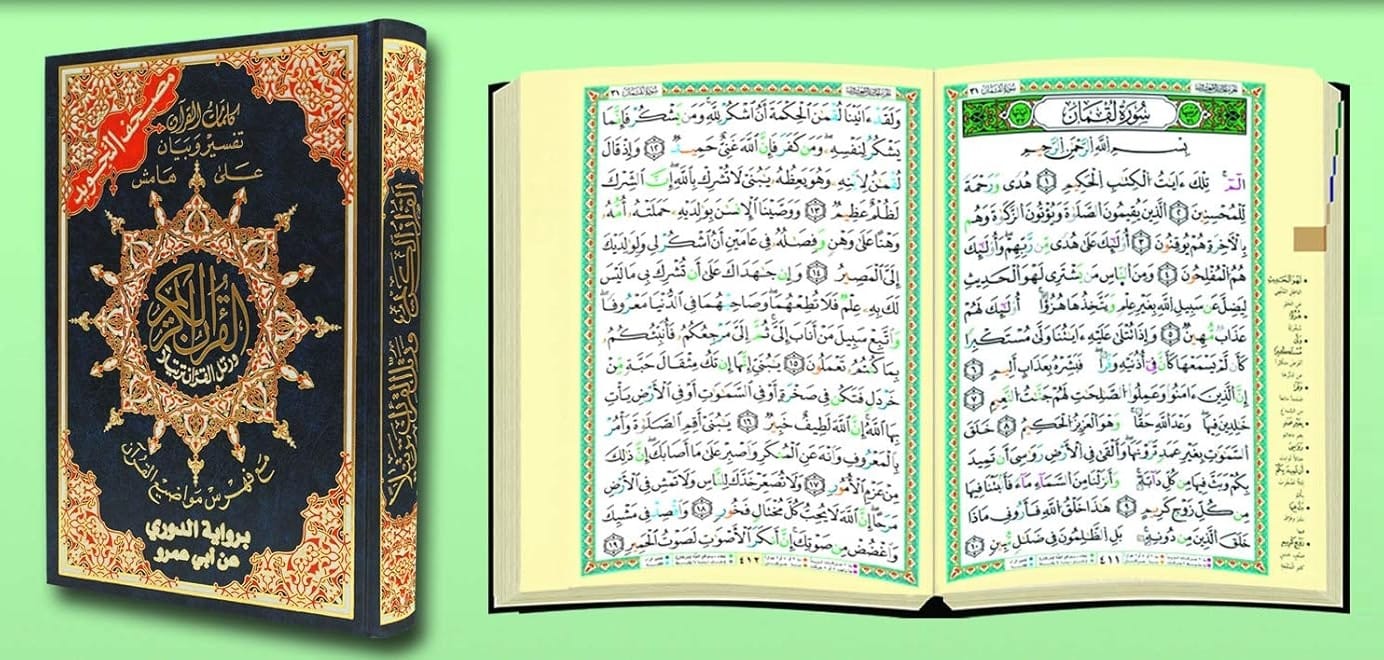 مصحف التجويد
كلمات القرآن
تفسير وبيان
على هامش
القرآن الكريم
ورتل القرآن ترتيلا
مع فهرس مواضيع القرآن
برواية الدوري
عن أبي عمرو
القرآن الكريم
ورتل القرآن ترتيلا
سورة لقمان ٣١
سورة لقمان
بسم الله الرحمن الرحيم
الم تلك ءايت الكتب الحكيم ١ هدى ورحمة
للمحسنين ٢ الذين يقيمون الصلوة ويؤتون الزكوة وهم
بالآخرة هم يوقنون ٣ أولئك على هدى من ربهم وأولئك
هم المفلحون ٤ ومن الناس من يشترى لهو الحديث
ليضل عن سبيل الله بغير علم ويتخذها هزؤا أولئك لهم
عذاب مهين ٥ وإذا تتلى عليه ءايتنا ولى مستكبرا
كأن لم يسمعها كأن فى أذنيه وقرا فبشره بعذاب أليم ٦
إن الذين ءامنوا وعملوا الصلحت لهم جنت النعيم ٧
خلدين فيها وعد الله حقا وهو العزيز الحكيم ٨ خلق
السموت بغير عمد ترونها وألقى فى الأرض روسى أن تميد
بكم وبث فيها من كل دابة وأنزلنا من السماء ماء فأنبتنا فيها
من كل زوج كريم ٩ هذا خلق الله فأرونى ماذا
خلق الذين من دونه بل الظلمون فى ضلل مبين ١٠
٤١١
لهو الحديث
هزؤا
ولى مستكبرا
وقرا
بغير عمد
روسى
أن تميد بكم
بث فيها
زوج كريم
سورة لقمان ٣١
ولقد ءاتينا لقمن الحكمة أن اشكر لله ومن يشكر فإنما
يشكر لنفسه ومن كفر فإن الله غنى حميد ١٢ وإذ قال
لقمن لابنه وهو يعظه يبنى لا تشرك بالله إن الشرك
لظلم عظيم ١٣ ووصينا الإنسن بولديه حملته أمه
وهنا على وهن وفصله فى عامين أن اشكر لى ولولديك
إلى المصير ١٤ وإن جهداك على أن تشرك بى ما ليس
لك به علم فلا تطعهما وصاحبهما فى الدنيا معروفا
واتبع سبيل من أناب إلى ثم إلى مرجعكم فأنبئكم
بما كنتم تعملون ١٥ يبنى إنها إن تك مثقال حبة من
خردل فتكن فى صخرة أو فى السموت أو فى الأرض يأت
بها الله إن الله لطيف خبير ١٦ يبنى أقم الصلوة وأمر
بالمعروف وانه عن المنكر واصبر على ما أصابك إن ذلك
من عزم الأمور ١٧ ولا تصعر خدك للناس ولا تمش فى الأرض
مرحا إن الله لا يحب كل مختال فخور ١٨ واقصد فى مشيك
واغضض من صوتك إن أنكر الأصوت لصوت الحمير ١٩
٤١٢